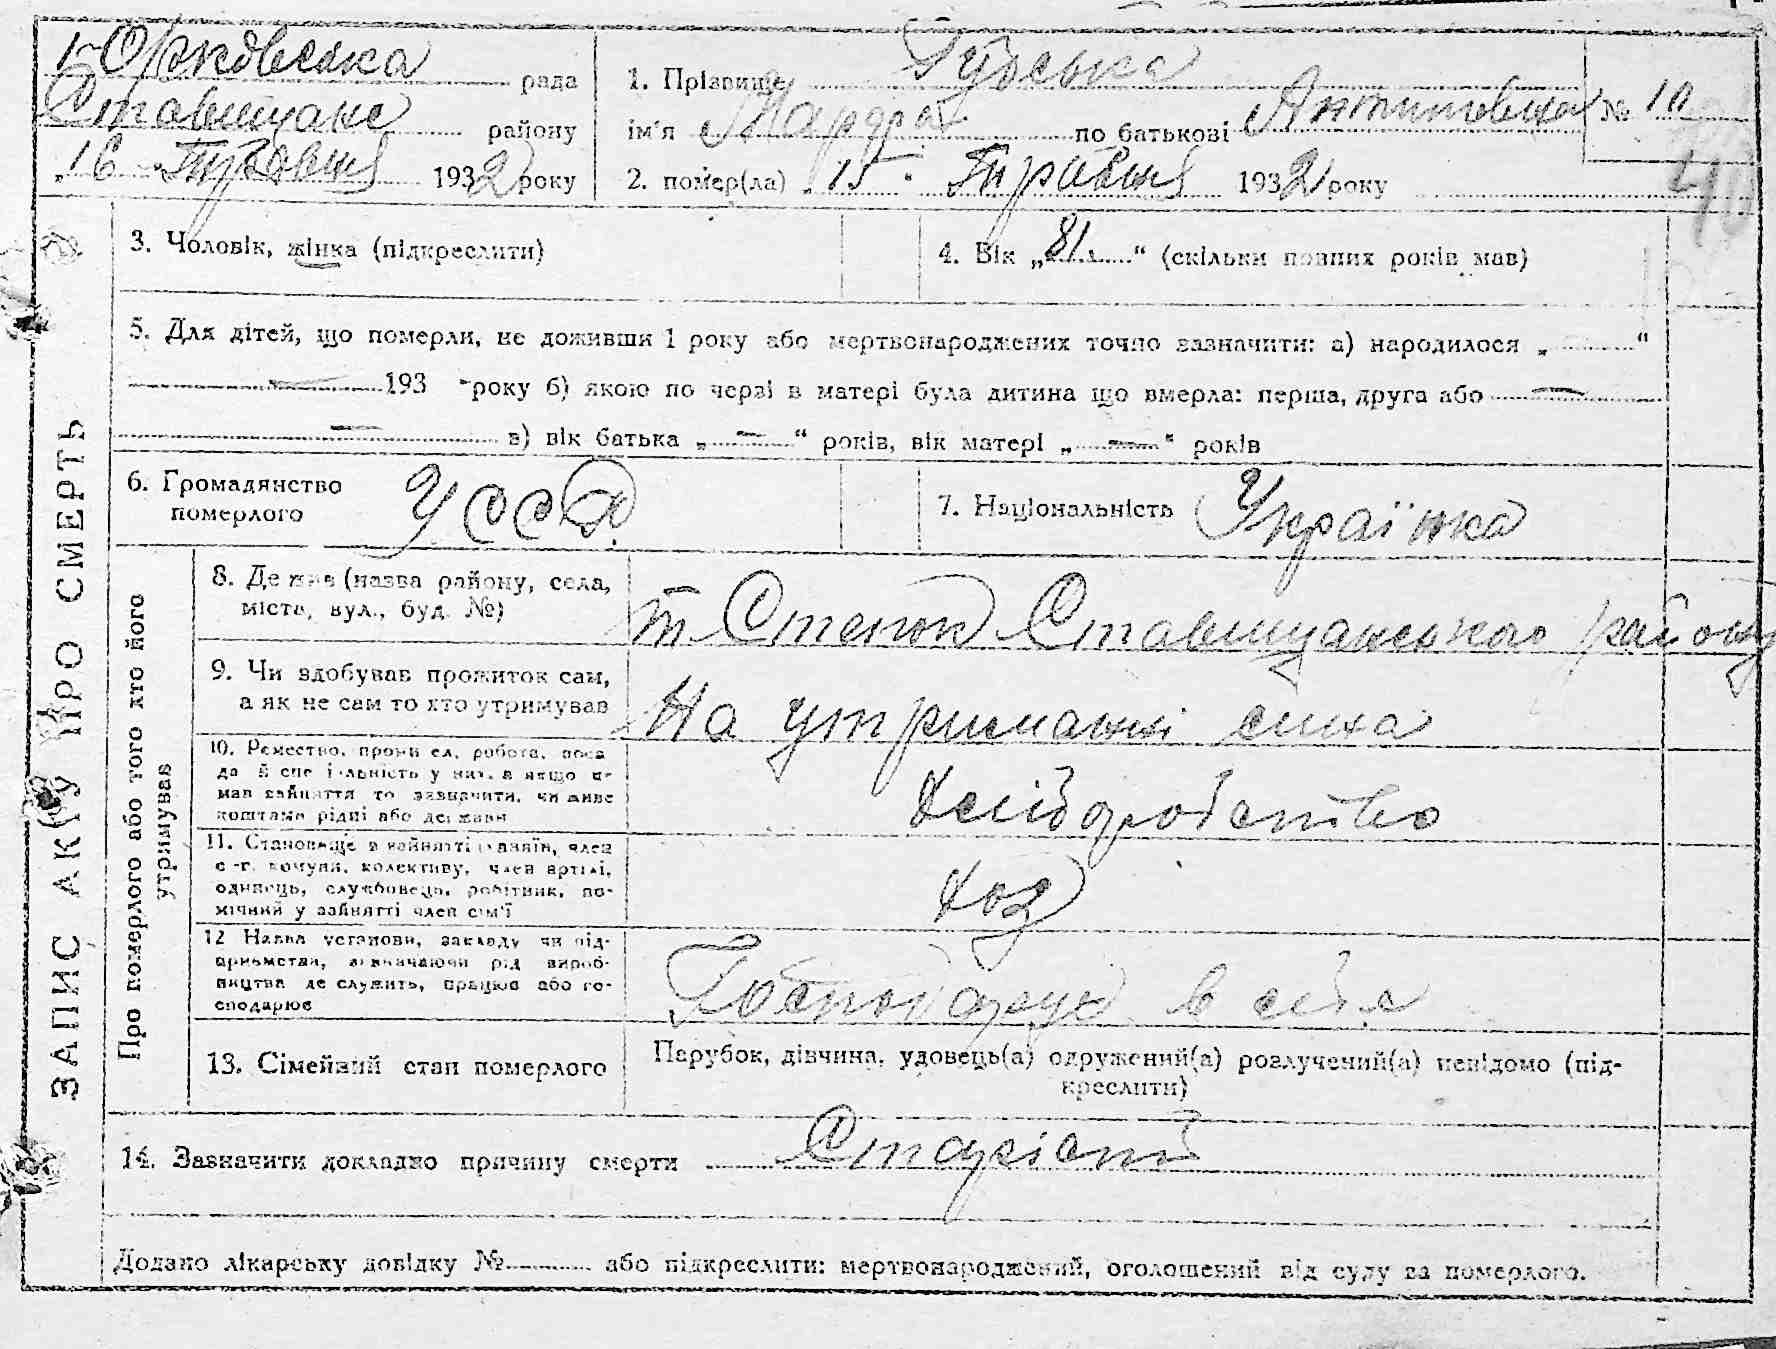 рада
Ставищанс району
"16" Травня 1932 року
1. Прізвище Гудська
ім'я по батькові Антипівна № 10
2. помер(ла) "15" Травня 1932 року
40
3. Чоловік, жінка (підкреслити)
4. Вік „81“ (скільки повних років мав)
5. Для дітей, що померли, не доживши 1 року або мертвонароджених точно зазначити: а) народилося „ — “
— 193 - року б) якою по черзі в матері була дитина що вмерла: перша, друга або —
— в) вік батька „ — “ років, вік матері „ — “ років
6. Громадянство
померлого УССР
7. Національність Українка
ЗАПИС АКТУ ПРО СМЕРТЬ
Про померлого або того хто його
утримував
8. Де жив (назва району, села,
міста, вул., буд. №)
Степок Ставищанського району
9. Чи здобував прожиток сам,
а як не сам то хто утримував
На утриманні сина
10. Ремество, промисел, робота, поса
да й спеціальність у них, а якщо не
мав зайняття то зазначити, чи живе
коштами рідні або держави
хліборобство
11. Становище в зайнятті: хазяїн, член
с.-г. комуни, колективу, член артілі,
одинець, службовець, робітник, по-
мічний у зайнятті член сім'ї
хоз
12 Назва установи, закладу чи під-
приємства, зазначаючи рід вироб-
ництва де служить, працює або го-
сподарює
Господарує в
13. Сімейний стан померлого
Парубок, дівчина, удовець(а) одружений(а) розлучений(а) невідомо (під-
креслити)
14. Зазначити докладно причину смерти Старість
Додано лікарську довідку № або підкреслити: мертвонароджений, оголошений від суду за померлого.